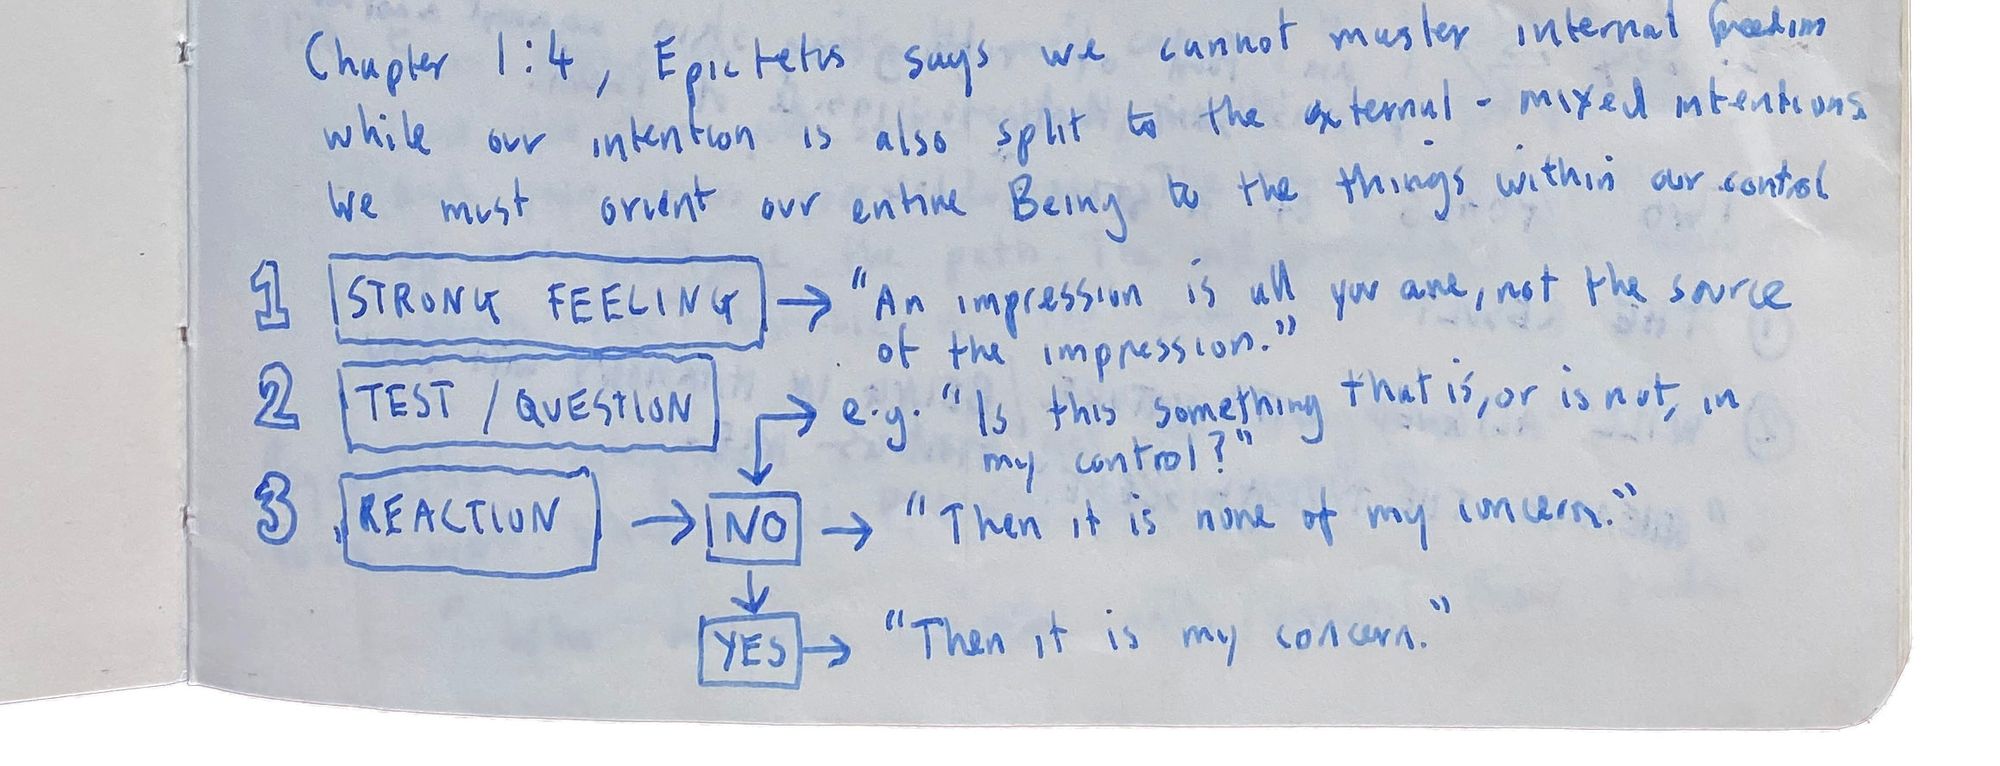 Chapter 1:4, Epictetus says we cannot master internal freedom
while our intention is also split to the external - mixed intentions
We must orient our entire Being to the things within our control
1 STRONG FEELING → "An impression is all you are, not the source
of the impression."
2 TEST / QUESTION → e.g. "Is this something that is, or is not, in
my control?"
3 REACTION → NO → "Then it is none of my concern."
YES → "Then it is my concern."